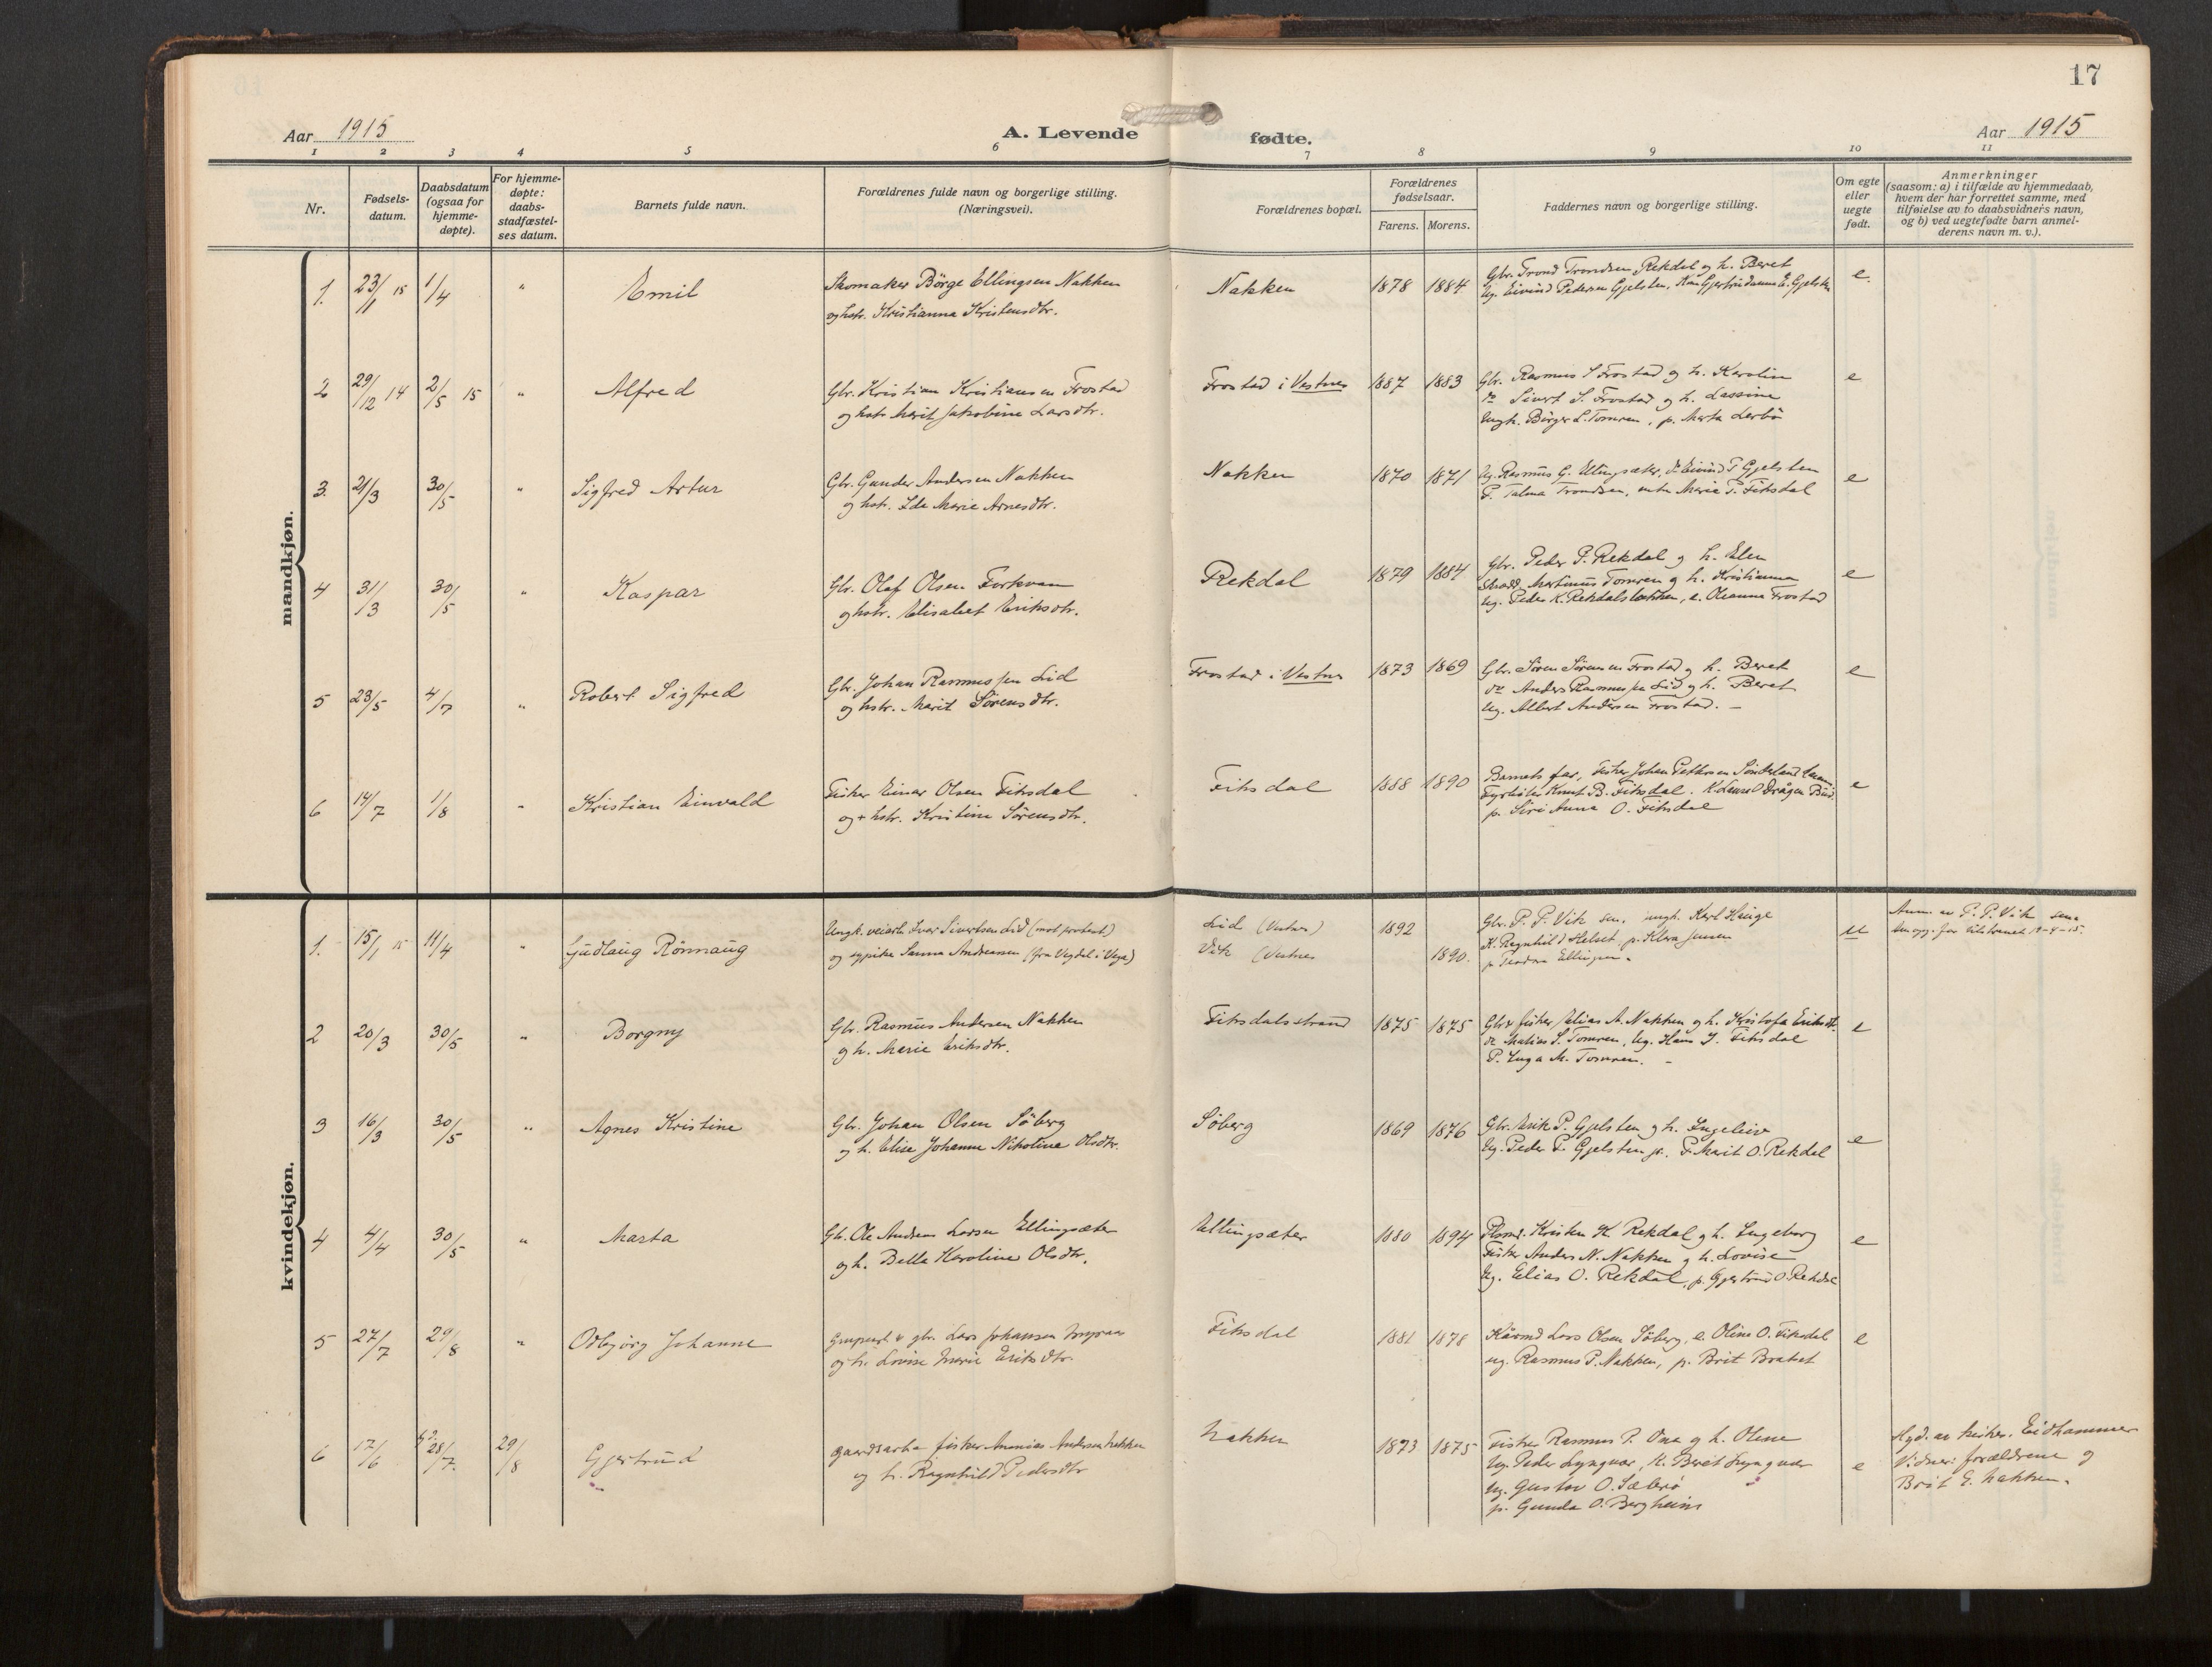 17
Aar 1915
A. Levende fødte.
Aar 1915
1 2 3 4 5 6 7 8 9 10 11
Nr.
Fødsels-
datum.
Daabsdatum
(ogsaa for
hjemme-
døpte).
For hjemme-
døpte:
daabs-
stadfæstel-
ses datum.
Barnets fulde navn.
Forældrenes fulde navn og borgerlige stilling.
(Næringsvei).
Forældrenes bopæl.
Forældrenes
fødselsaar.
Farens. Morens.
Faddernes navn og borgerlige stilling.
Om egte
eller
uegte
født.
Anmerkninger
(saasom: a) i tilfælde av hjemmedaab,
hvem der har forrettet samme, med
tilføielse av to daabsvidners navn,
og b) ved uegtefødte barn anmel-
derens navn m. v.).
mandkjøn.
1. 23/1 15 1/4 " Emil
Skomaker Börge Ellingsen Nakken
og hstr. Kristianna Kristensdtr.
Nakken 1878 1884
Gbr. Trond Trondsen Rekdal og h. Beret
Ug. Eivind Pedersen Gjelsten,
e.
2 29/12 14 2/5 15 " Alfred
Gbr. Kristian Kristiansen Frostad
og hstr. Marit Jakobine Larsdtr.
Frostad i Vestnes 1887 1883
Gbr. Rasmus S Frostad og h. Karolin
do Sivert S. Frostad og h. Lassine
Ungk. Börge L. Tomren, p. Marta Lerbö
e
3. 21/3 30/5 " Sigfred Artur
Gbr. Gunder Andersen Nakken
og hstr. Ida Marie Arnesdtr.
Nakken 1870 1871
Ug. Rasmus G. Ellingsæter, do Eivind P Gjelsten
P. Talma Trondsen, Marie P. Fiksdal
e
4 31/3 30/5 " Kaspar
Gbr. Olaf Olsen
og hstr. Elisabet Eriksdtr.
Rekdal 1879 1884
Gbr. Peder P. Rekdal og h. Elen
Skrædd. Martinus Tomren og h. Kristianna
Ug. Peder K. Rekdalsbakken, e. Oleanna Frostad
e
5 23/5 4/7 " Robert Sigfred
Gbr. Johan Rasmussen Lid
og hstr. Marit Sörensdtr.
Frostad i Vestnes 1873 1869
Gbr. Sören Sörensen Frostad og h. Beret
do Anders Rasmussen Lid og h. Beret
Ug. Albert Andersen Frostad. –
e
6 14/7 1/8 " Kristian Einvald
Fisker Einar Olsen Fiksdal
og + hstr. Kristine Sörensdtr.
Fiksdal 1888 1890
Barnets far, Fisker Johan
Knut B. Fiksdal.
p. Siri Anna O. Fiksdal
e
kvindekjøn.
1. 15/1 15 11/4 " Gudlaug Rönnaug
Ungk. veiarb. Ivar Sivertsen Lid (mot protest)
og ugpike Sanna Andreassen (fra Vegdal i Vega)
Lid (Vestnes) 1892
Vik (Vestnes 1890.
Gbr. P. P. Vik sen. ungk. Karl Hauge
K. Ragnhild Helset, p. Klara Jensen
p. Ellingsen.
u
Anm. av P. P. Vik sen.
19-4-15.
2 20/3 30/5 " Borgny
Gbr. Rasmus Andersen Nakken
og h. Marie Eriksdtr.
Fiksdalsstrand 1875 1875
Gbr & fisker Elias A. Nakken og h. Kristofa Eriksdt.
do Matias S. Tomren, Ug. Hans J. Fiksdal
P. Inga M. Tomren. –
e
3 16/3 30/5 " Agnes Kristine
Gbr. Johan Olsen Söberg
og h. Elise Johanne Nikoline Olsdtr.
Söberg 1869 1876
Gbr. Erik P. Gjelsten og h. Ingeleiv
Ug. Peder P. Gjelsten jr. P. Marit O. Rekdal
e
4 4/4 30/5 " Marta
Gb. Ole Andreas Larsen Ellingsæter
og h. Bella Karoline Olsdtr.
Ellingsæter 1880 1894
Kristen K. Rekdal og h. Ingeborg
Fisker Anders N. Nakken og h. Lovise
Ug. Elias O. Rekdal, p. Gjertrud O. Rekdal
e
5 27/7 29/8 " Odbjörg Johanne
& gbr. Lars Johansen
og h. Lovise Marie Eriksdtr.
Fiksdal 1881 1878
Kårmd Lars Olsen Söberg, e. Oline O. Fiksdal
ug. Rasmus P. Nakken, p. Brit Bratset
e
6 17/6 28/7. 29/8 Gjertrud
gaardsarb. fisker Ananias Andersen Nakken
og h. Ragnhild Pedersdtr
Nakken 1873 1875
Fisker Rasmus P. Ona og h. Oline
Ug. Peder Lyngvær, K. Beret Lyngvær
Ug. Gustav O. Sæterö
p. Gunda O. Bergheim
e
Hjd. av Eidhammer
Vidner: forældrene og
Brit E. Nakken.